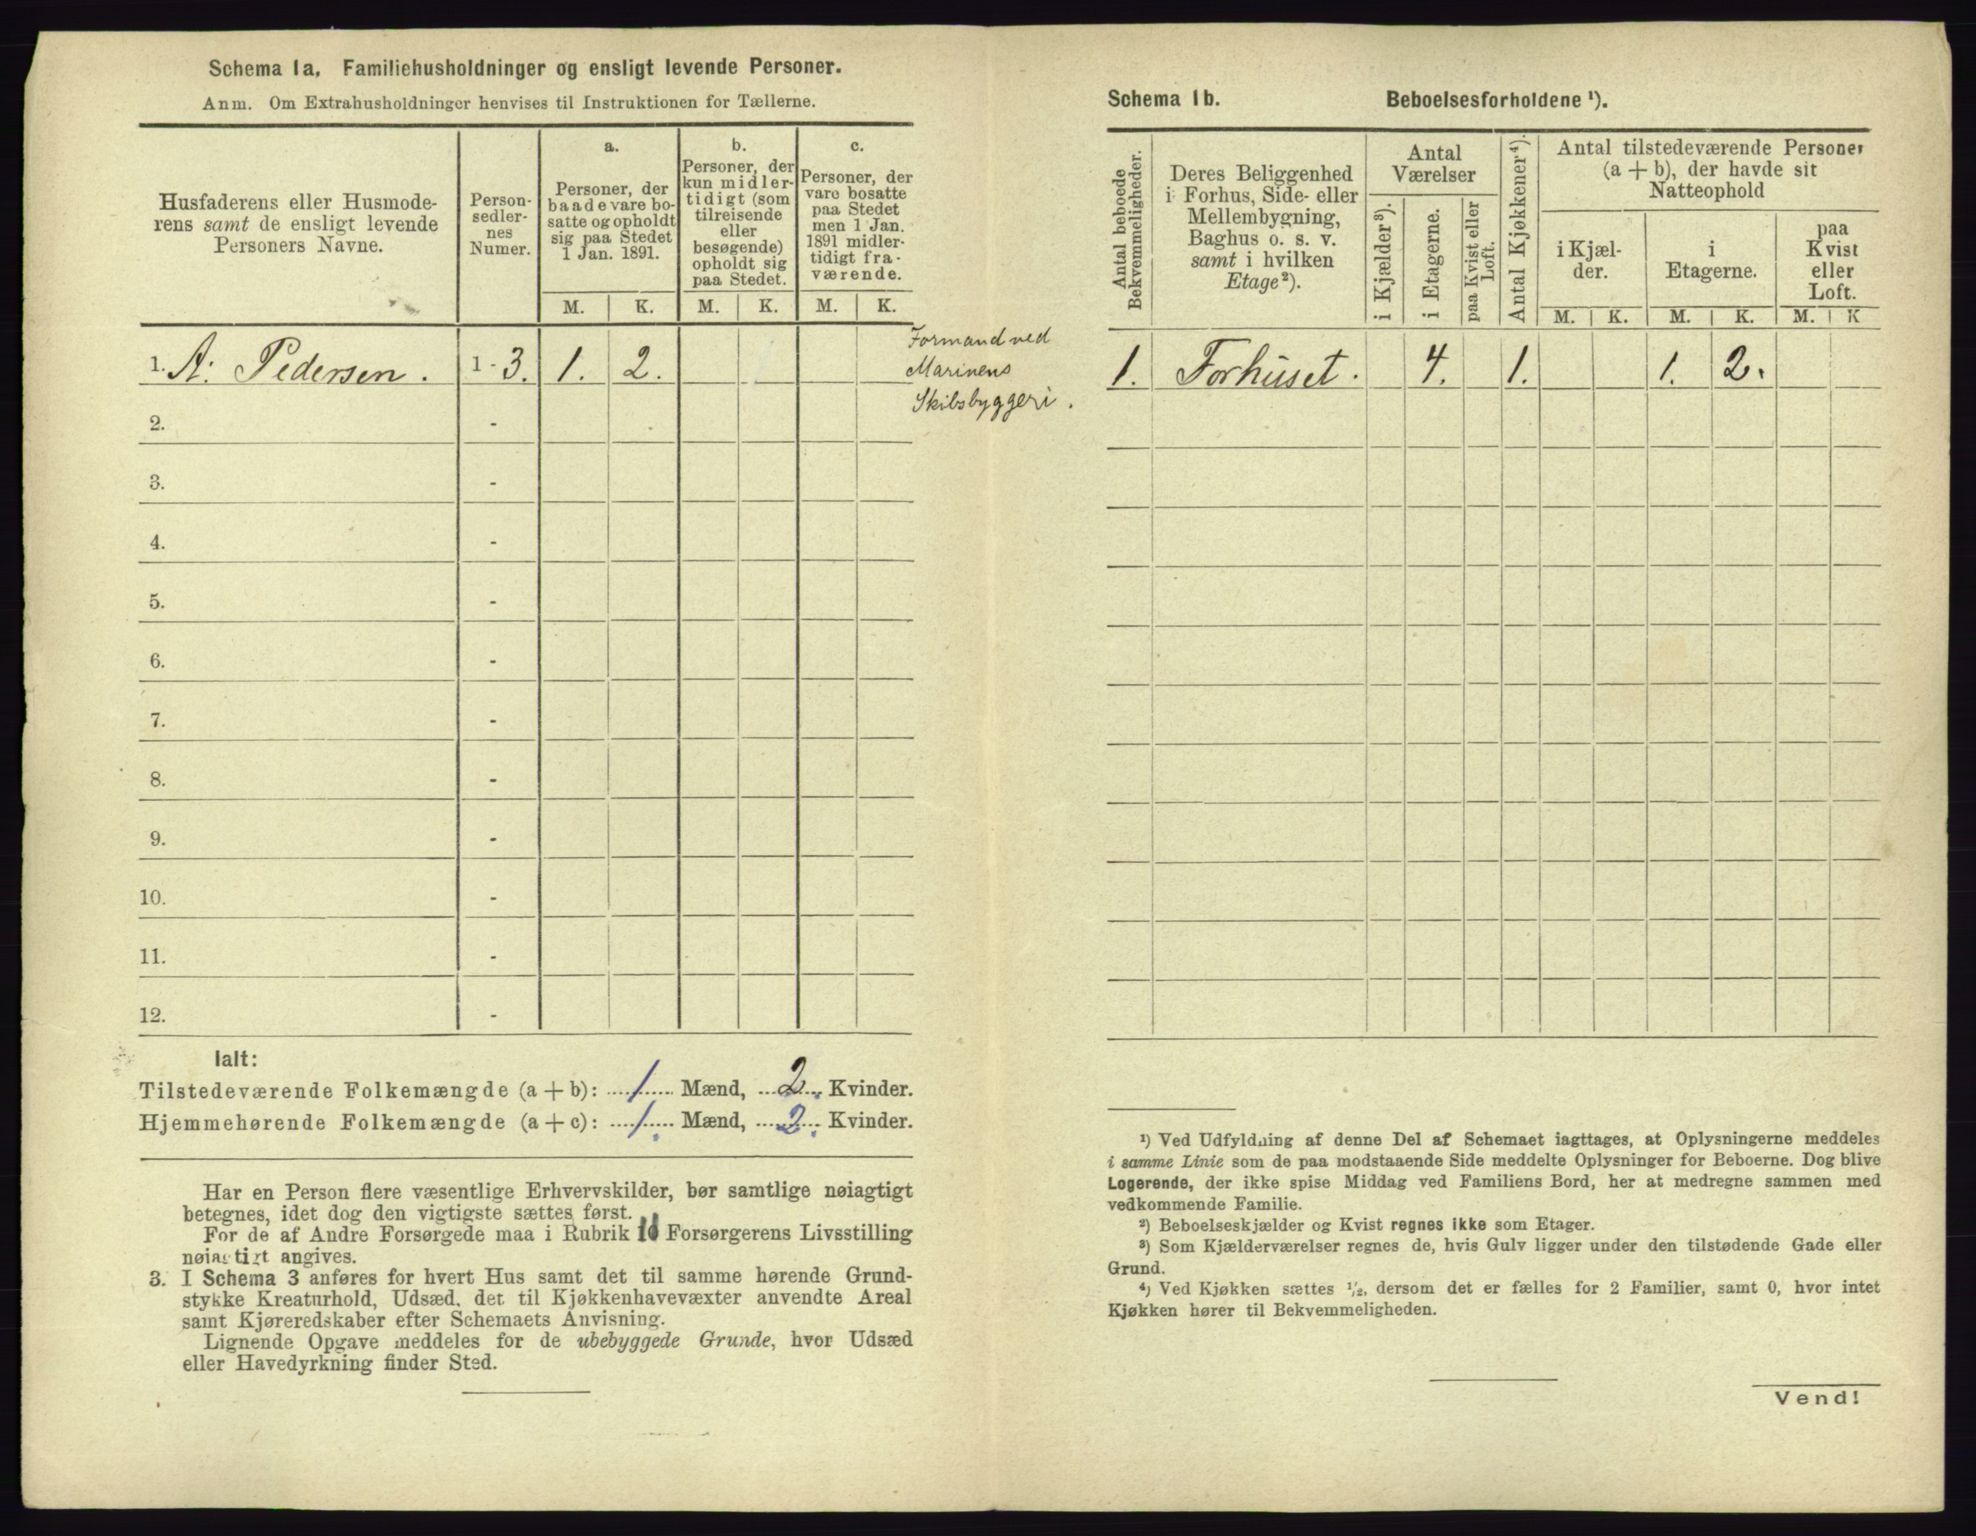 Schema 1a. Familiehusholdninger og ensligt levende Personer.
Anm. Om Extrahusholdninger henvises til Instruktionen for Tællerne.
Husfaderens eller Husmode-
rens samt de ensligt levende
Personers Navne.
Person-
sedler-
nes
Numer.
a.
Personer, der
baade vare bo-
satte og opholdt
sig paa Stedet
1 Jan. 1891.
b.
Personer, der
kun midler-
tidigt (som
tilreisende
eller
besøgende)
opholdt sig
paa Stedet.
c.
Personer, der
vare bosatte
paa Stedet
men 1 Jan.
1891 midler-
tidigt fra-
værende.
M. K. M. K. M. K.
1. A. Pedersen. 1 - 3. 1. 2.
Formand ved
Marinens
Skibsbyggeri.
2. -
3. -
4. -
5. -
6. -
7. -
8. -
9. -
10. -
11. -
12. -
Ialt:
Tilstedeværende Folkemængde (a + b): 1 Mænd, 2. Kvinder.
Hjemmehørende Folkemængde (a + c): 1. Mænd, 2. Kvinder.
Har en Person flere væsentlige Erhvervskilder, bør samtlige nøiagtigt
betegnes, idet dog den vigtigste sættes først.
For de af Andre Forsørgede maa i Rubrik 10 Forsørgerens Livsstilling
nøiagtigt angives.
3. I Schema 3 anføres for hvert Hus samt det til samme hørende Grund-
stykke Kreaturhold, Udsæd, det til Kjøkkenhavevæxter anvendte Areal
samt Kjøreredskaber efter Schemaets Anvisning.
Lignende Opgave meddeles for de ubebyggede Grunde, hvor Udsæd
eller Havedyrkning finder Sted.
Schema 1b. Beboelsesforholdene ¹).
Antal beboede
Bekvemmeligheder.
Deres Beliggenhed
i Forhus, Side- eller
Mellembygning,
Baghus o. s. v.
samt i hvilken
Etage²).
Antal
Værelser
i Kjælder³).
i Etagerne.
paa Kvist eller
Loft.
Antal Kjøkkener⁴).
Antal tilstedeværende Personer
(a + b), der havde sit
Natteophold
i Kjæl-
der.
i
Etagerne.
paa
Kvist
eller
Loft.
M. K. M. K. M. K
1. Forhuset. 4. 1. 1. 2.
¹) Ved Udfyldning af denne Del af Schemaet iagttages, at Oplysningerne meddeles
i samme Linie som de paa modstaaende Side meddelte Oplysninger for Beboerne. Dog blive
Logerende, der ikke spise Middag ved Familiens Bord, her at medregne sammen med
vedkommende Familie.
²) Beboelseskjælder og Kvist regnes ikke som Etager.
³) Som Kjælderværelser regnes de, hvis Gulv ligger under den tilstødende Gade eller
Grund.
⁴) Ved Kjøkken sættes ½, dersom det er fælles for 2 Familier, samt 0, hvor intet
Kjøkken hører til Bekvemmeligheden.
Vend!